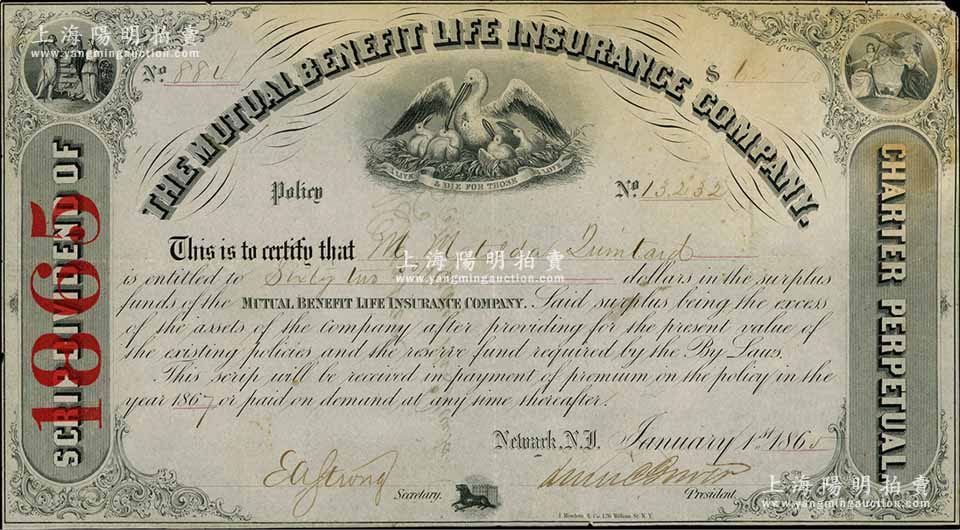 上海陽明拍賣
www.yangmingauction.com
上海陽明拍賣
www.yangmingauction.com
No. 884
$ 62
THE MUTUAL BENEFIT LIFE INSURANCE COMPANY.
I LIVE & DIE FOR THOSE I LOVE
Policy No. 13,232
SCRIP DIVIDEND OF
1865
CHARTER PERPETUAL
This is to certify that M Matilda Quintard
上海陽明拍賣
www.yangmingauction.com
is entitled to Sixty two dollars in the surplus
funds of the MUTUAL BENEFIT LIFE INSURANCE COMPANY. Said surplus being the excess
of the assets of the company after providing for the present value of
the existing policies and the reserve fund required by the By Laws.
This scrip will be received in payment of premium on the policy in the
year 1867 or paid on demand at any time thereafter.
Newark, N.J. January 1st 1865
E A Strong Secretary.
President.
上海陽明拍賣
www.yangmingauction.com